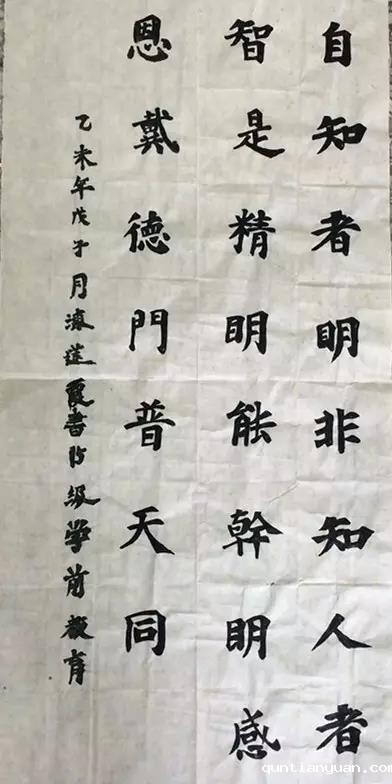 自知者明非知人者
智是精明能幹明感
恩戴德門普天同
乙未年戊子月濂莲霞書15级学前教育
quntianyuan.com